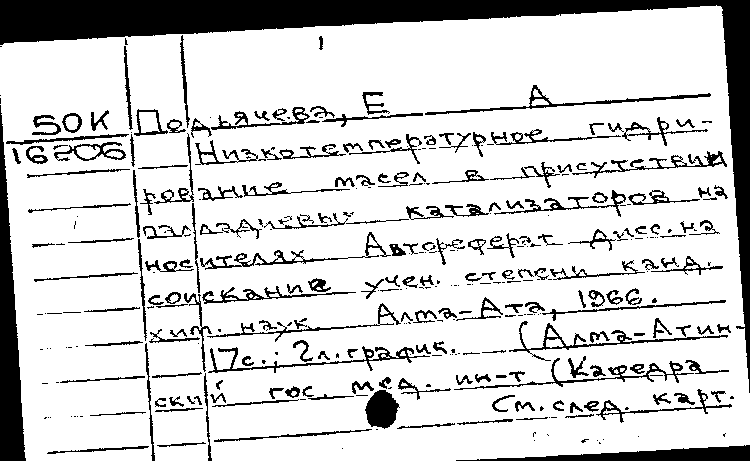 50К Подъячева, Е А
16206 Низкотемпературное гидри-
рование масел в присутствии
палладиевых катализаторов на
носителях. Автореферат дисс. на
соискание учен. степени канд.
хим. наук. Алма-Ата, 1966.
17с.; 2л. график. (Алма-Атин-
ский гос. мед. ин-т. (Кафедра
См. след. карт.